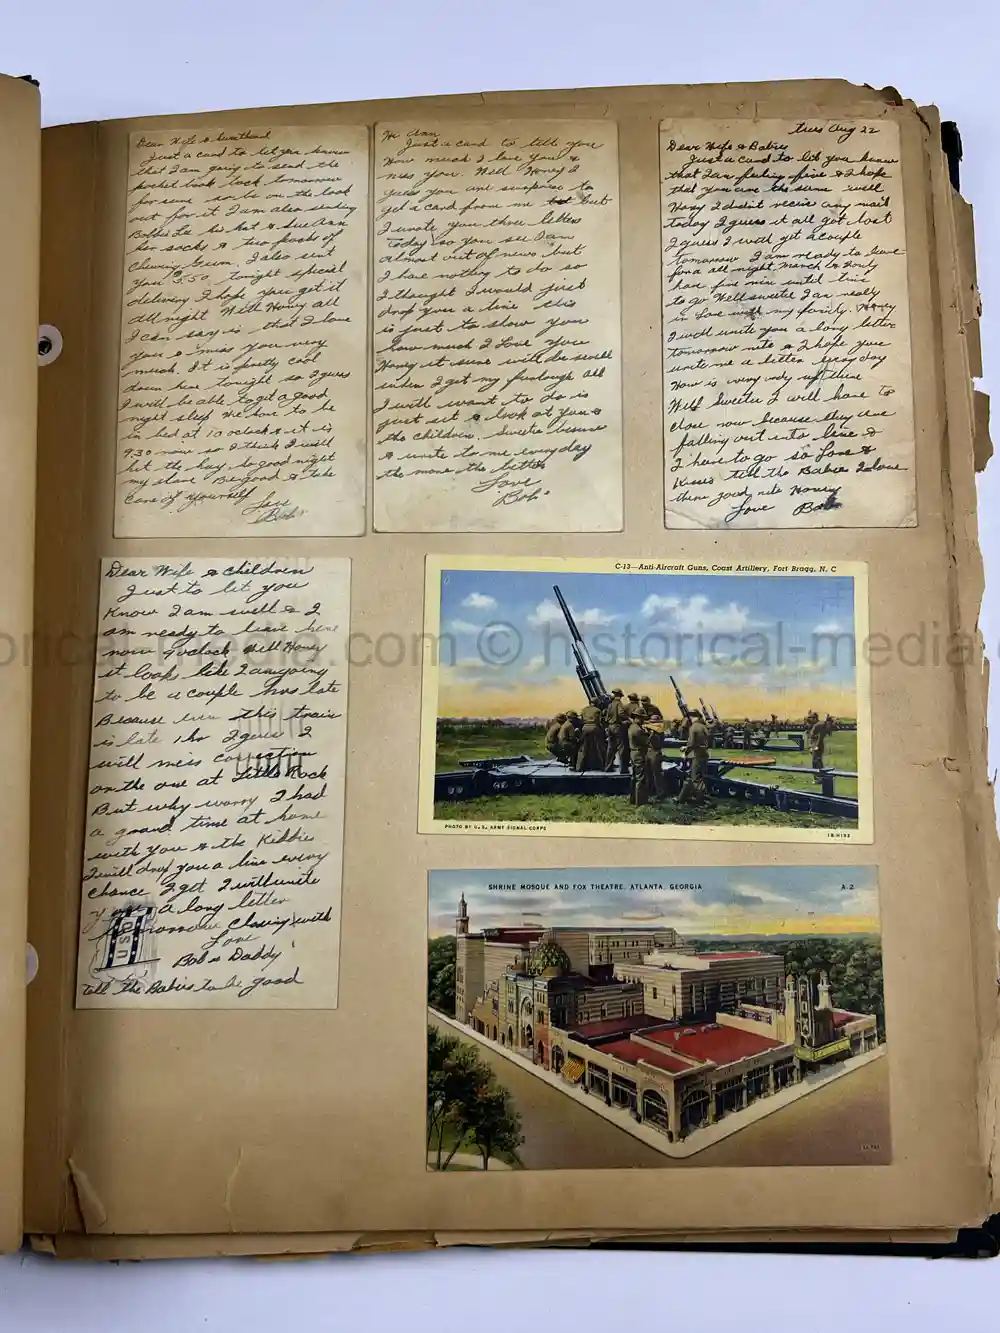 Dear Wife & Sweetheart
Just a card to let you know
that I am going to send the
pocket book back tomorrow
for sure so be on the look
out for it I am also sending
Bobbie Lee his hat & Sue Ann
her socks & two packs of
chewing gum. I also sent
you 3.50 tonight special
delivery I hope you get it
all right Well Honey all
I can say is that I love
you & miss you very
much. It is pretty cool
down here tonight so I guess
I will be able to get a good
night sleep We have to be
in bed at 10 oclock & it is
9.30 now so I think I will
hit the hay. So good night
my Be good & take
care of yourself
Love
"Bob"
Hi Ann
Just a card to tell you
How much I love you &
miss you. Well Honey I
guess you are surprise to
get a card from me but but
I wrote you three letters
Today so you see I am
almost out of news but
I have nothing to do so
I thought I would just
drop you a line this
is just to show you
how much I Love you
Honey it sure will be swell
when I get my furlough All
I will want to do is
just sit & look at you &
the children. Sweetie
& write to me everyday
the more the better
Love
"Bob"
Tues Aug 22
Dear Wife & Babies
Just a card to let you know
that I am feeling fine & I hope
that you are the same well
Honey I didn't receive any mail
today I guess it all got lost
I guess I will get a couple
tomorrow I am ready to leave
for a all night march & only
have five min until time
to go Well sweetie I am really
in love with my family. Honey
I will write you a long letter
tomorrow nite & I hope you
write me a letter everyday
How is every body up there
Well Sweetie I will have to
close now because they are
falling out into line &
I have to go so Love &
Kisses tell the Babies I love
them good nite Honey
Love Bob
Dear Wife & children
Just to let you
Know I am well & I
am ready to leave here
now 9 oclock Well Honey
it looks like I am going
to be a couple hrs late
Because even this train
is late 1 hr I guess I
will miss connection
on the one at Little Rock
But why worry I had
a grand time at home
with you & the Kiddies
I will drop you a line every
chance I get I will write
you a long letter
tomorrow Closing with
Love
Bob & Daddy
tell the Babies to be good
USO
C-13—Anti-Aircraft Guns, Coast Artillery, Fort Bragg, N. C
PHOTO BY U. S. ARMY SIGNAL CORPS
1B-H192
SHRINE MOSQUE AND FOX THEATRE, ATLANTA, GEORGIA
A-2
FOX
© historical-media.com © historical-media